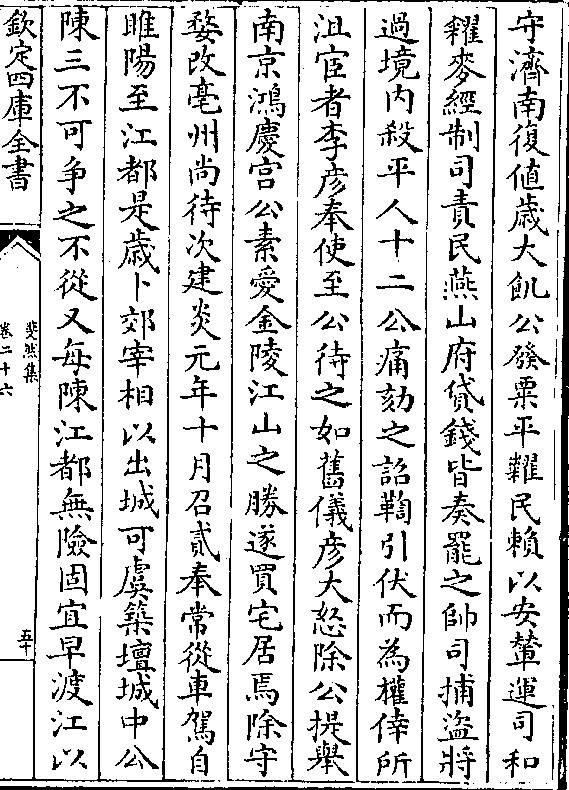 守濟南復値歳大飢公發粟平糶民賴以安輦運司和
糴麥經制司責民燕山府貸錢皆奏罷之帥司捕盜將
過境内殺平人十二公痛劾之詔鞫引伏而為權倖所
沮宦者李彦奉使至公待之如舊儀彦大怒除公提舉
南京鴻慶宫公素愛金陵江山之勝遂買宅居焉除守
婺改亳州尚待次建炎元年十月召貳奉常從車駕自
睢陽至江都是歳卜郊宰相以出城可虞築壇城中公
陳三不可争之不從又每陳江都無險固宜早渡江以
欽定四庫全書
斐然集
卷二十六
五十